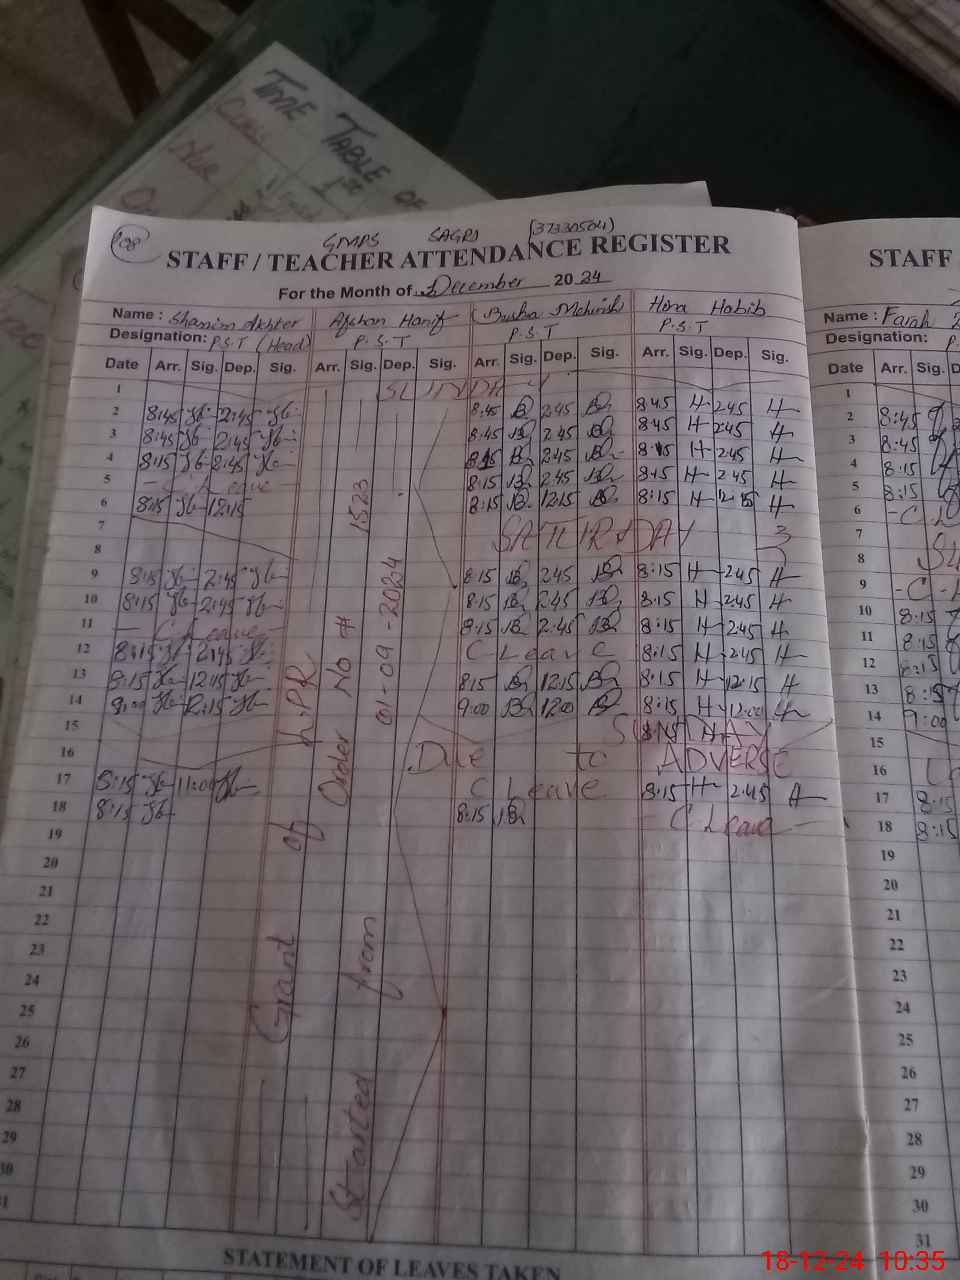 TIME TABLE OF
Class
1st
108
GMPS SAGRI (37330504)
STAFF / TEACHER ATTENDANCE REGISTER
STAFF
For the Month of December 2024
Name : Shamim Akhter Afshan Hanif Hira Habib
Name : Farah
Designation: P.S.T (Head) P.S.T P.S.T P.S.T
Designation: P.
Date Arr. Sig. Dep. Sig. Arr. Sig. Dep. Sig. Arr. Sig. Dep. Sig. Arr. Sig. Dep. Sig.
Date Arr. Sig. D
1 SUNDAY
1
2 8:45 2:45 8:45 2:45 8:45 H 2:45 H
2 8:45
3 8:45 2:45 8:45 2:45 8:45 H 2:45 H
3 8:45
4 8:15 2:45 8:15 2:45 8:15 H 2:45 H
4 8:15
5 - C Leave 8:15 2:45 8:15 H 2:45 H
5 8:15
6 8:15 12:15 8:15 12:15 8:15 H 12:15 H
6 - C L
7
7
8
8 SU
9 8:15 2:45 8:15 2:45 8:15 H 2:45 H
9 - C - L
10 8:15 2:45 8:15 2:45 8:15 H 2:45 H
10 8:15
11 - C Leave - 8:15 2:45 8:15 H 2:45 H
11 8:15
12 8:15 2:45 C Leave 8:15 H 2:45 H
12 8:15
13 8:15 12:15 8:15 12:15 8:15 H 12:15 H
13 8:15
14 9:00 12:15 9:00 1200 8:15 H 12:00 H
14 9:00
15 SUNDAY
15
16 Due to ADVERSE
16
17 8:15 11:00 C Leave 8:15 H 2:45 H
17 8:15
18 8:15 8:15 - C Leave -
18 8:15
19
19
20
20
21
21
22
22
23
23
24
24
25
25
26
26
27
27
28
28
29
29
30
30
31
31
Grant of L.PR
Order No # 1523
Started from 01-09-2024
STATEMENT OF LEAVES TAKEN
18-12-24 10:35